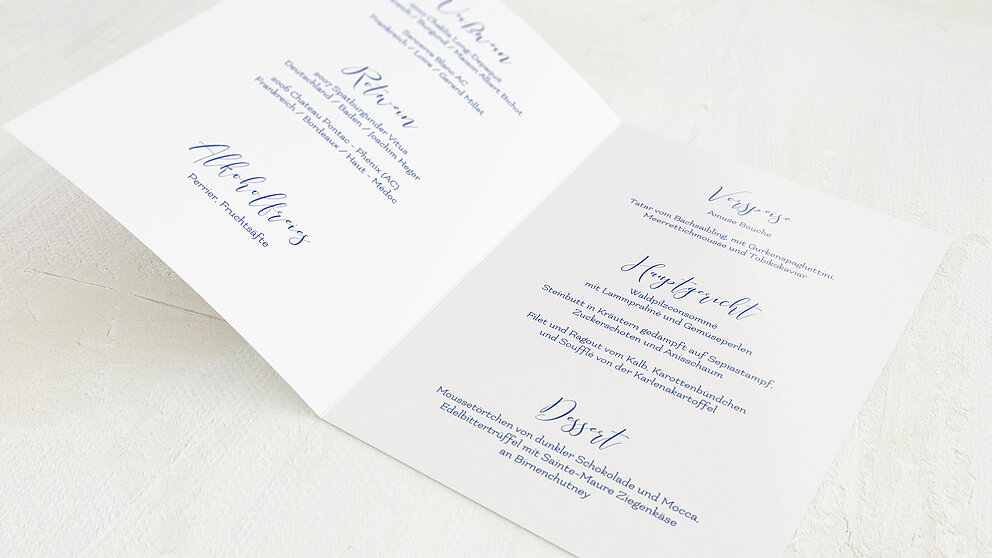 Weißwein
Chablis Long-Depaquit
Burgund / Maison Albert Bichot
Sancerre Blanc AC
Frankreich / Loire / Gerard Millet
Rotwein
2007 Spätburgunder Vitus
Deutschland / Baden / Joachim Heger
2006 Chateau Pontac - Phénix (AC)
Frankreich / Bordeaux / Haut - Medoc
Alkoholfreies
Perrier, Fruchtsäfte
Vorspeise
Amuse Bouche
Tatar vom Bachsaibling mit Gurkenspaghettini,
Meerrettichmousse und Tobikokaviar
Hauptgericht
Waldpilzconsommé
mit Lammpraliné und Gemüseperlen
Steinbutt in Kräutern gedämpft auf Sepiastampf,
Zuckerschoten und Anisschaum
Filet und Ragout vom Kalb, Karottenbündchen
und Souffle von der Karlenakartoffel
Dessert
Moussetörtchen von dunkler Schokolade und Mocca,
Edelbittertrüffel mit Sainte-Maure Ziegenkäse
an Birnenchutney